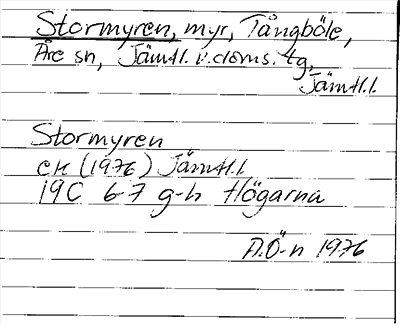 Stormyren, myr, Tångböle,
Åre sn, Jämtl. v. doms. tg,
Jämtl.l.
Stormyren
ek (1976) Jämtl.l
19C 6-7 g-h Högarna
A.Ö-n 1976